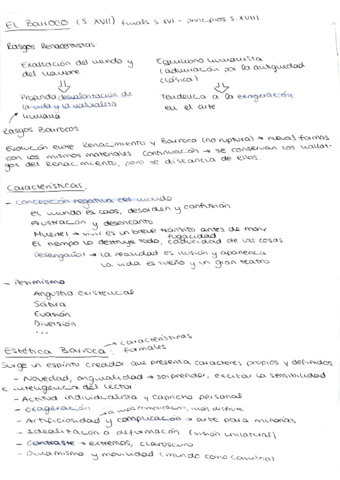 EL BARROCO (S. XVII) finales S XVI - principios S. XVIII
Rasgos Renacentistas
Exaltación del mundo y del hombre
Equilibrio humanista (admiración por la antigüedad clásica)
Profunda desvalorización de la vida y la naturaleza humana
Tendencia a la exageración en el arte
Rasgos Barrocos
Evolución entre Renacimiento y Barroco (no ruptura) → nuevas formas
con los mismos materiales. Continuación → se conservan los hallaz-
gos del Renacimiento, pero se distancia de ellos.
Características:
- Concepción negativa del mundo
El mundo es caos, desorden y confusión
Frustración y desencanto
Muerte → vivir es un breve tránsito antes de morir
fugacidad
El tiempo lo destruye todo, caducidad de las cosas
Desengaño → la realidad es ilusión y apariencia
la vida es sueño y un gran teatro
- Pesimismo
Angustia existencial
Sátira
Evasión
Diversión
...
→ características
Estética Barroca: formales
Surge un espíritu creador que presenta caracteres propios y definidos
- Novedad, originalidad → sorprender, excitar la sensibilidad
e inteligencia del lector
- Actitud individualista y capricho personal
- Exageración
- Artificiosidad y complicación → arte para minorías
- Idealización o deformación (visión unilateral)
- Contraste → extremos, claroscuro
- Dinamismo y movilidad (mundo como cambio)